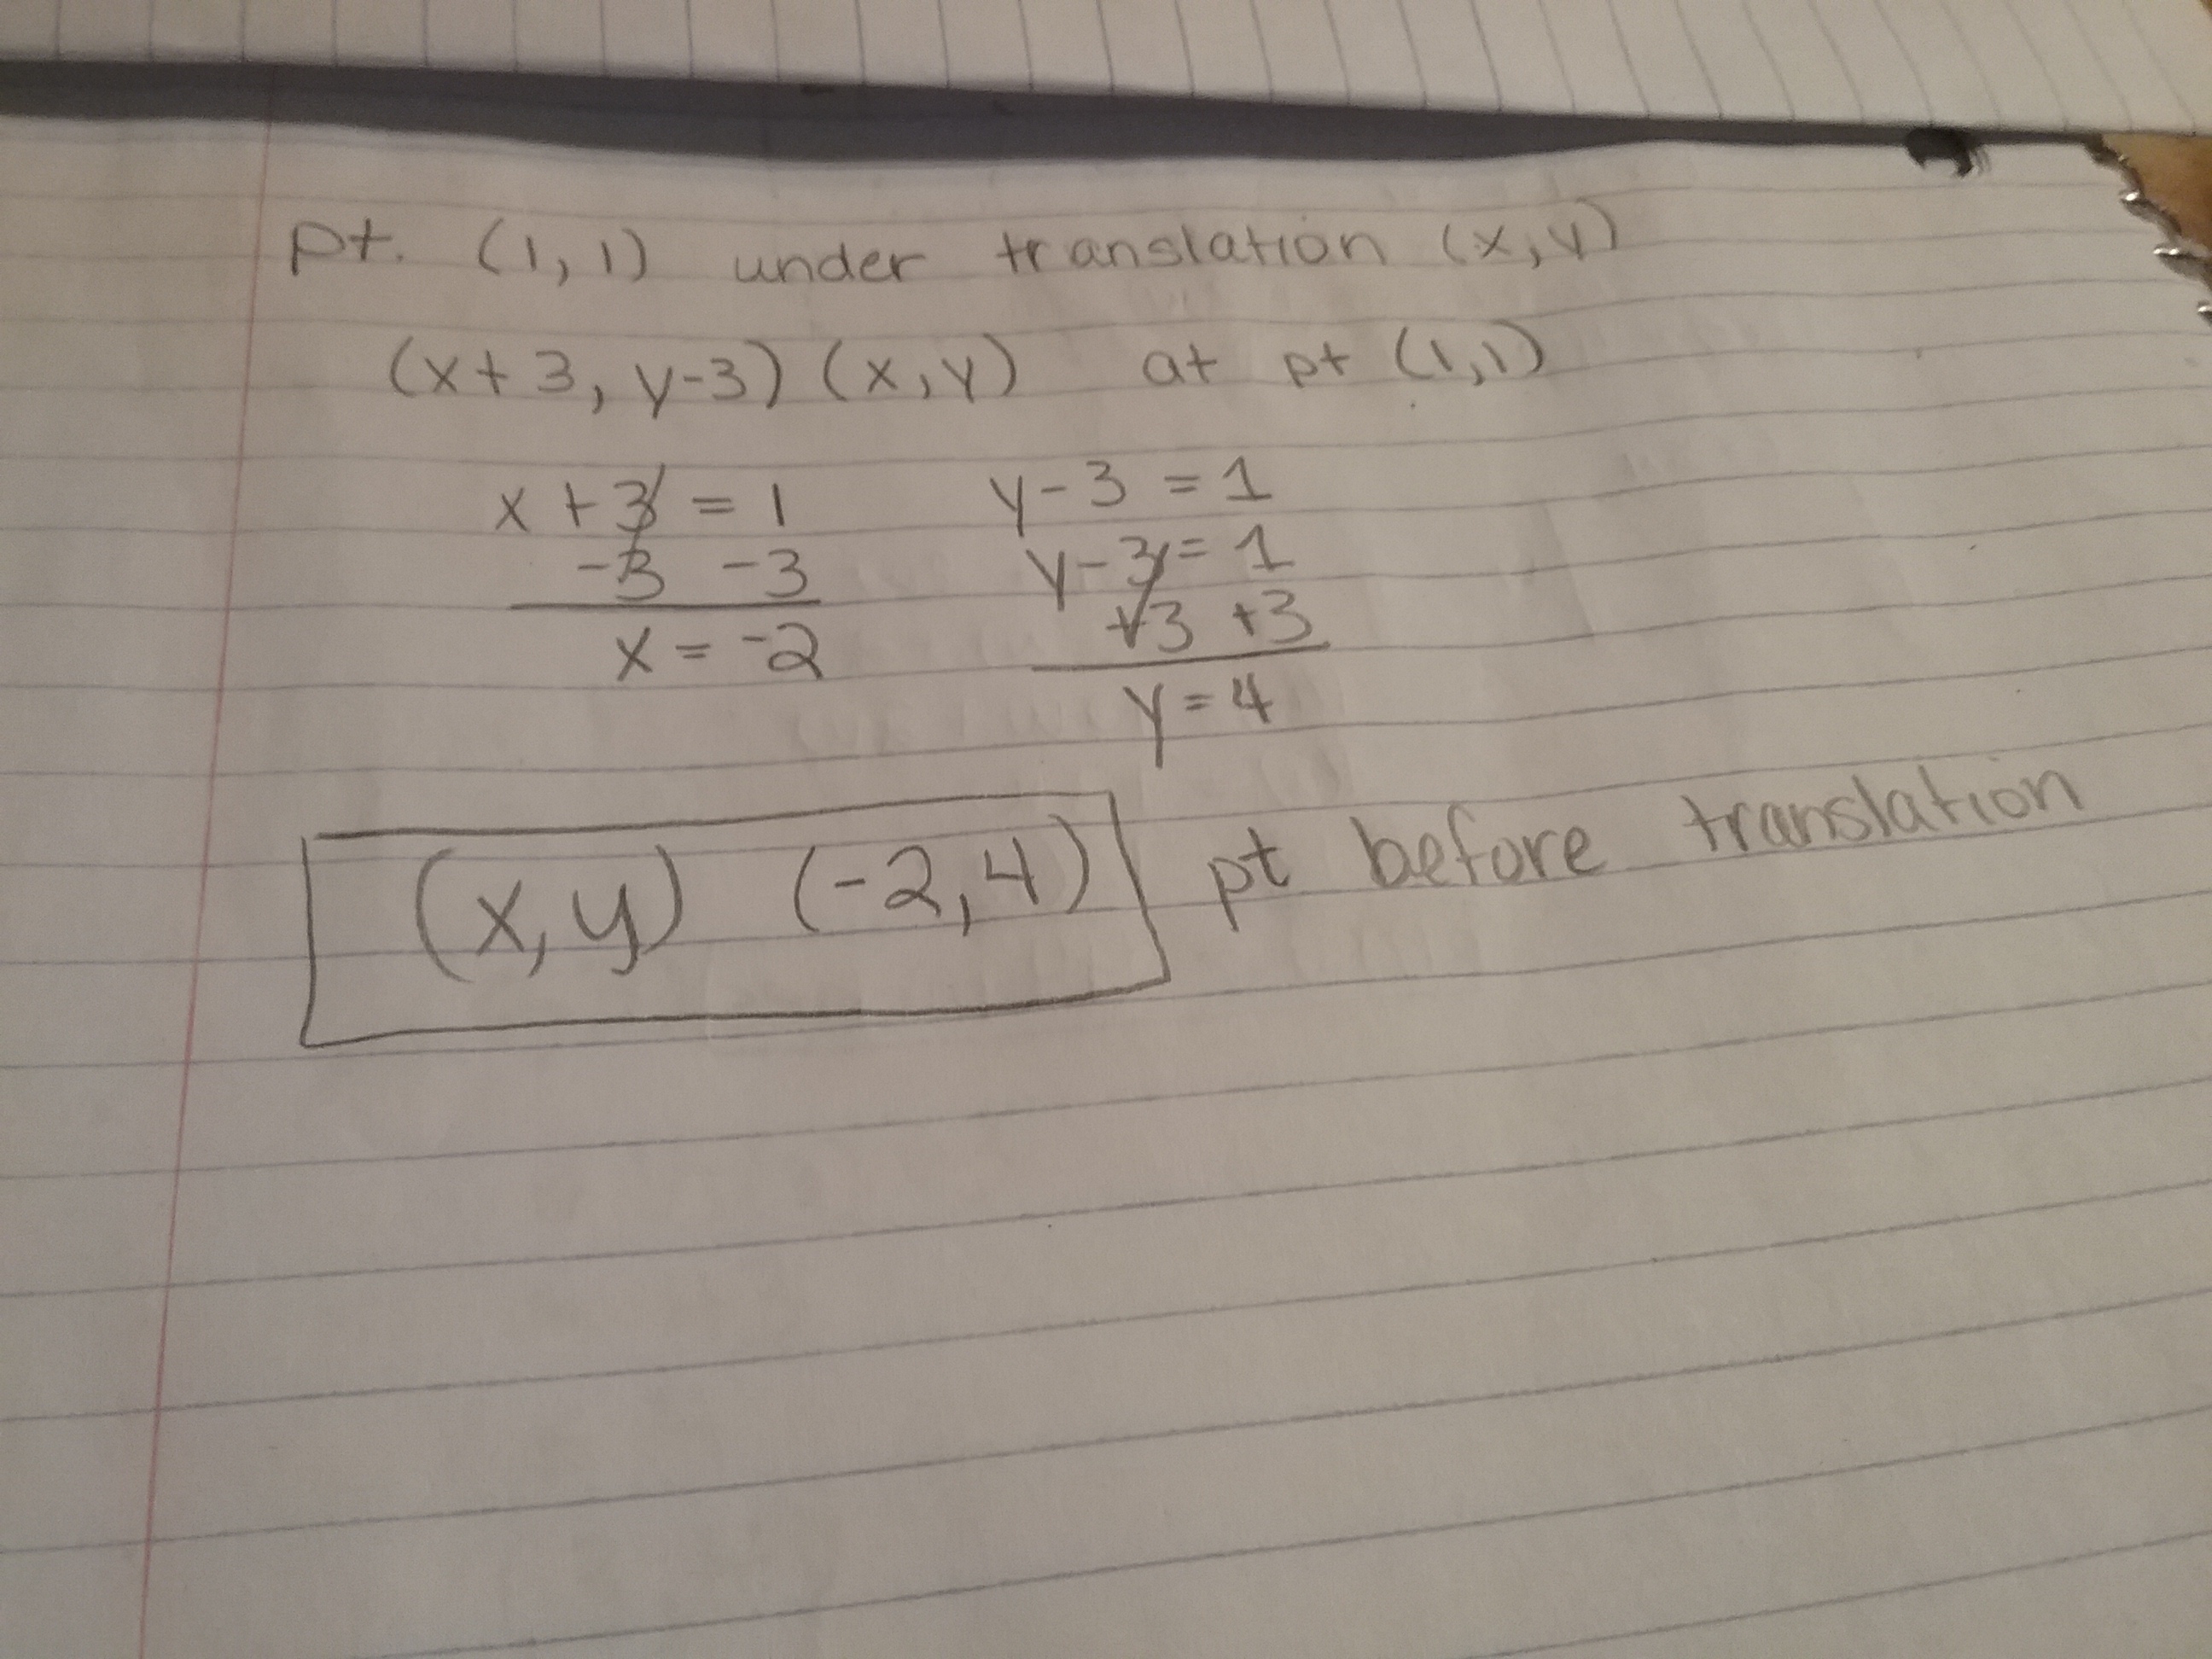 pt. (1,1) under translation (x,y)
(x+3, y-3) (x,y) at pt (1,1)
x + 3 = 1 y - 3 = 1
-3 -3 y - 3 = 1
x = -2 +3 +3
y = 4
(x,y) (-2,4) pt before translation